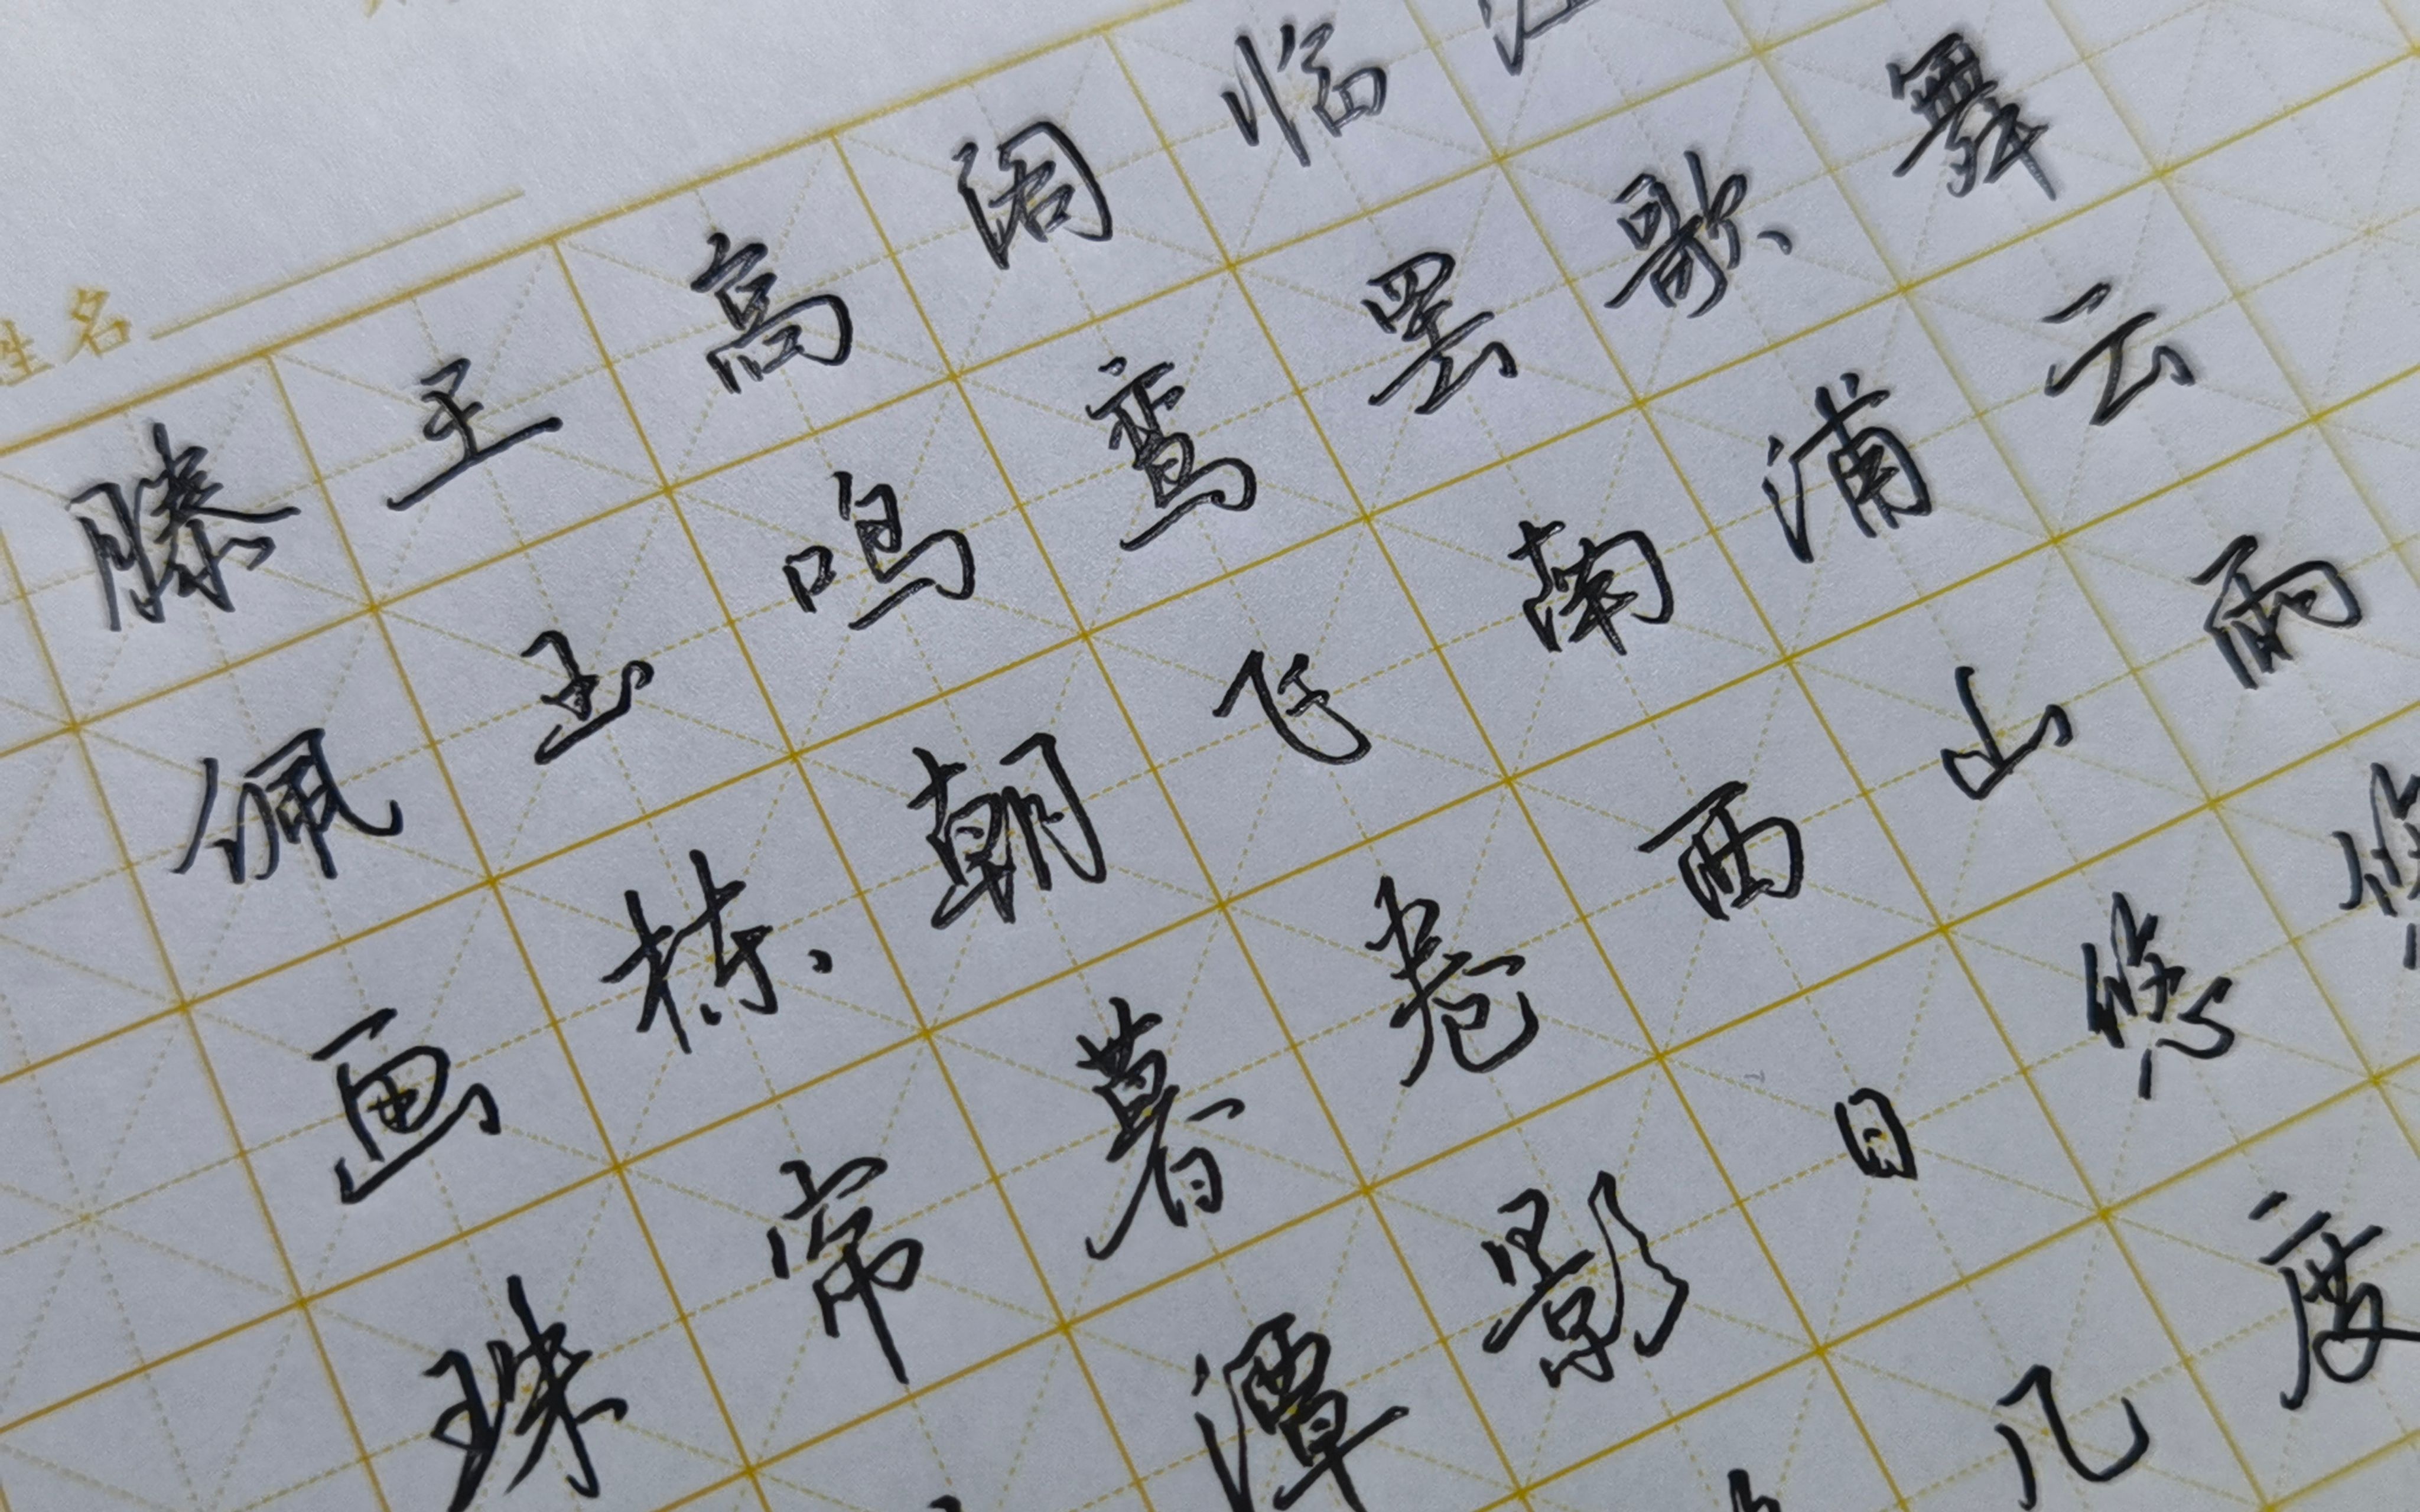 姓名
滕王高阁临
佩玉鸣鸾罢歌舞
画栋朝飞南浦云
珠帘暮卷西山雨
潭影日悠悠
几度